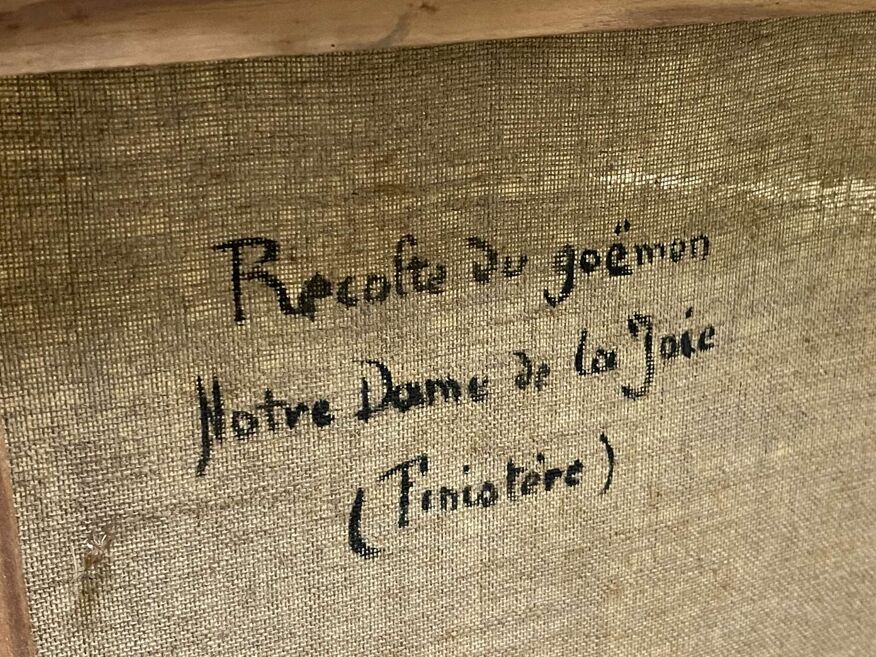 Recolte du goëmon
Notre Dame de la Joie
(Finistère)